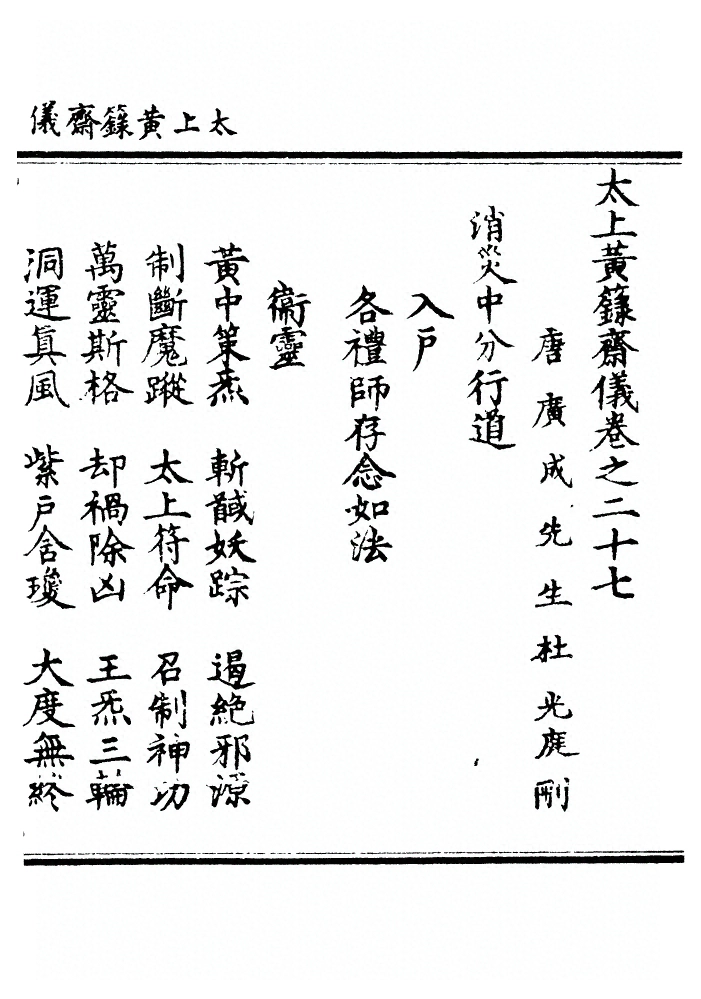 太上黃籙齋儀
太上黃籙齋儀卷之二十七
唐廣成先生杜光庭刪
消災中分行道
入戶
各禮師存念如法
衛靈
黃中策炁 斬馘妖踪 遏絕邪源
制斷魔蹤 太上符命 召制神功
萬靈斯格 却禍除凶 王炁三輪
洞運真風 紫戶含瓊 大度無終